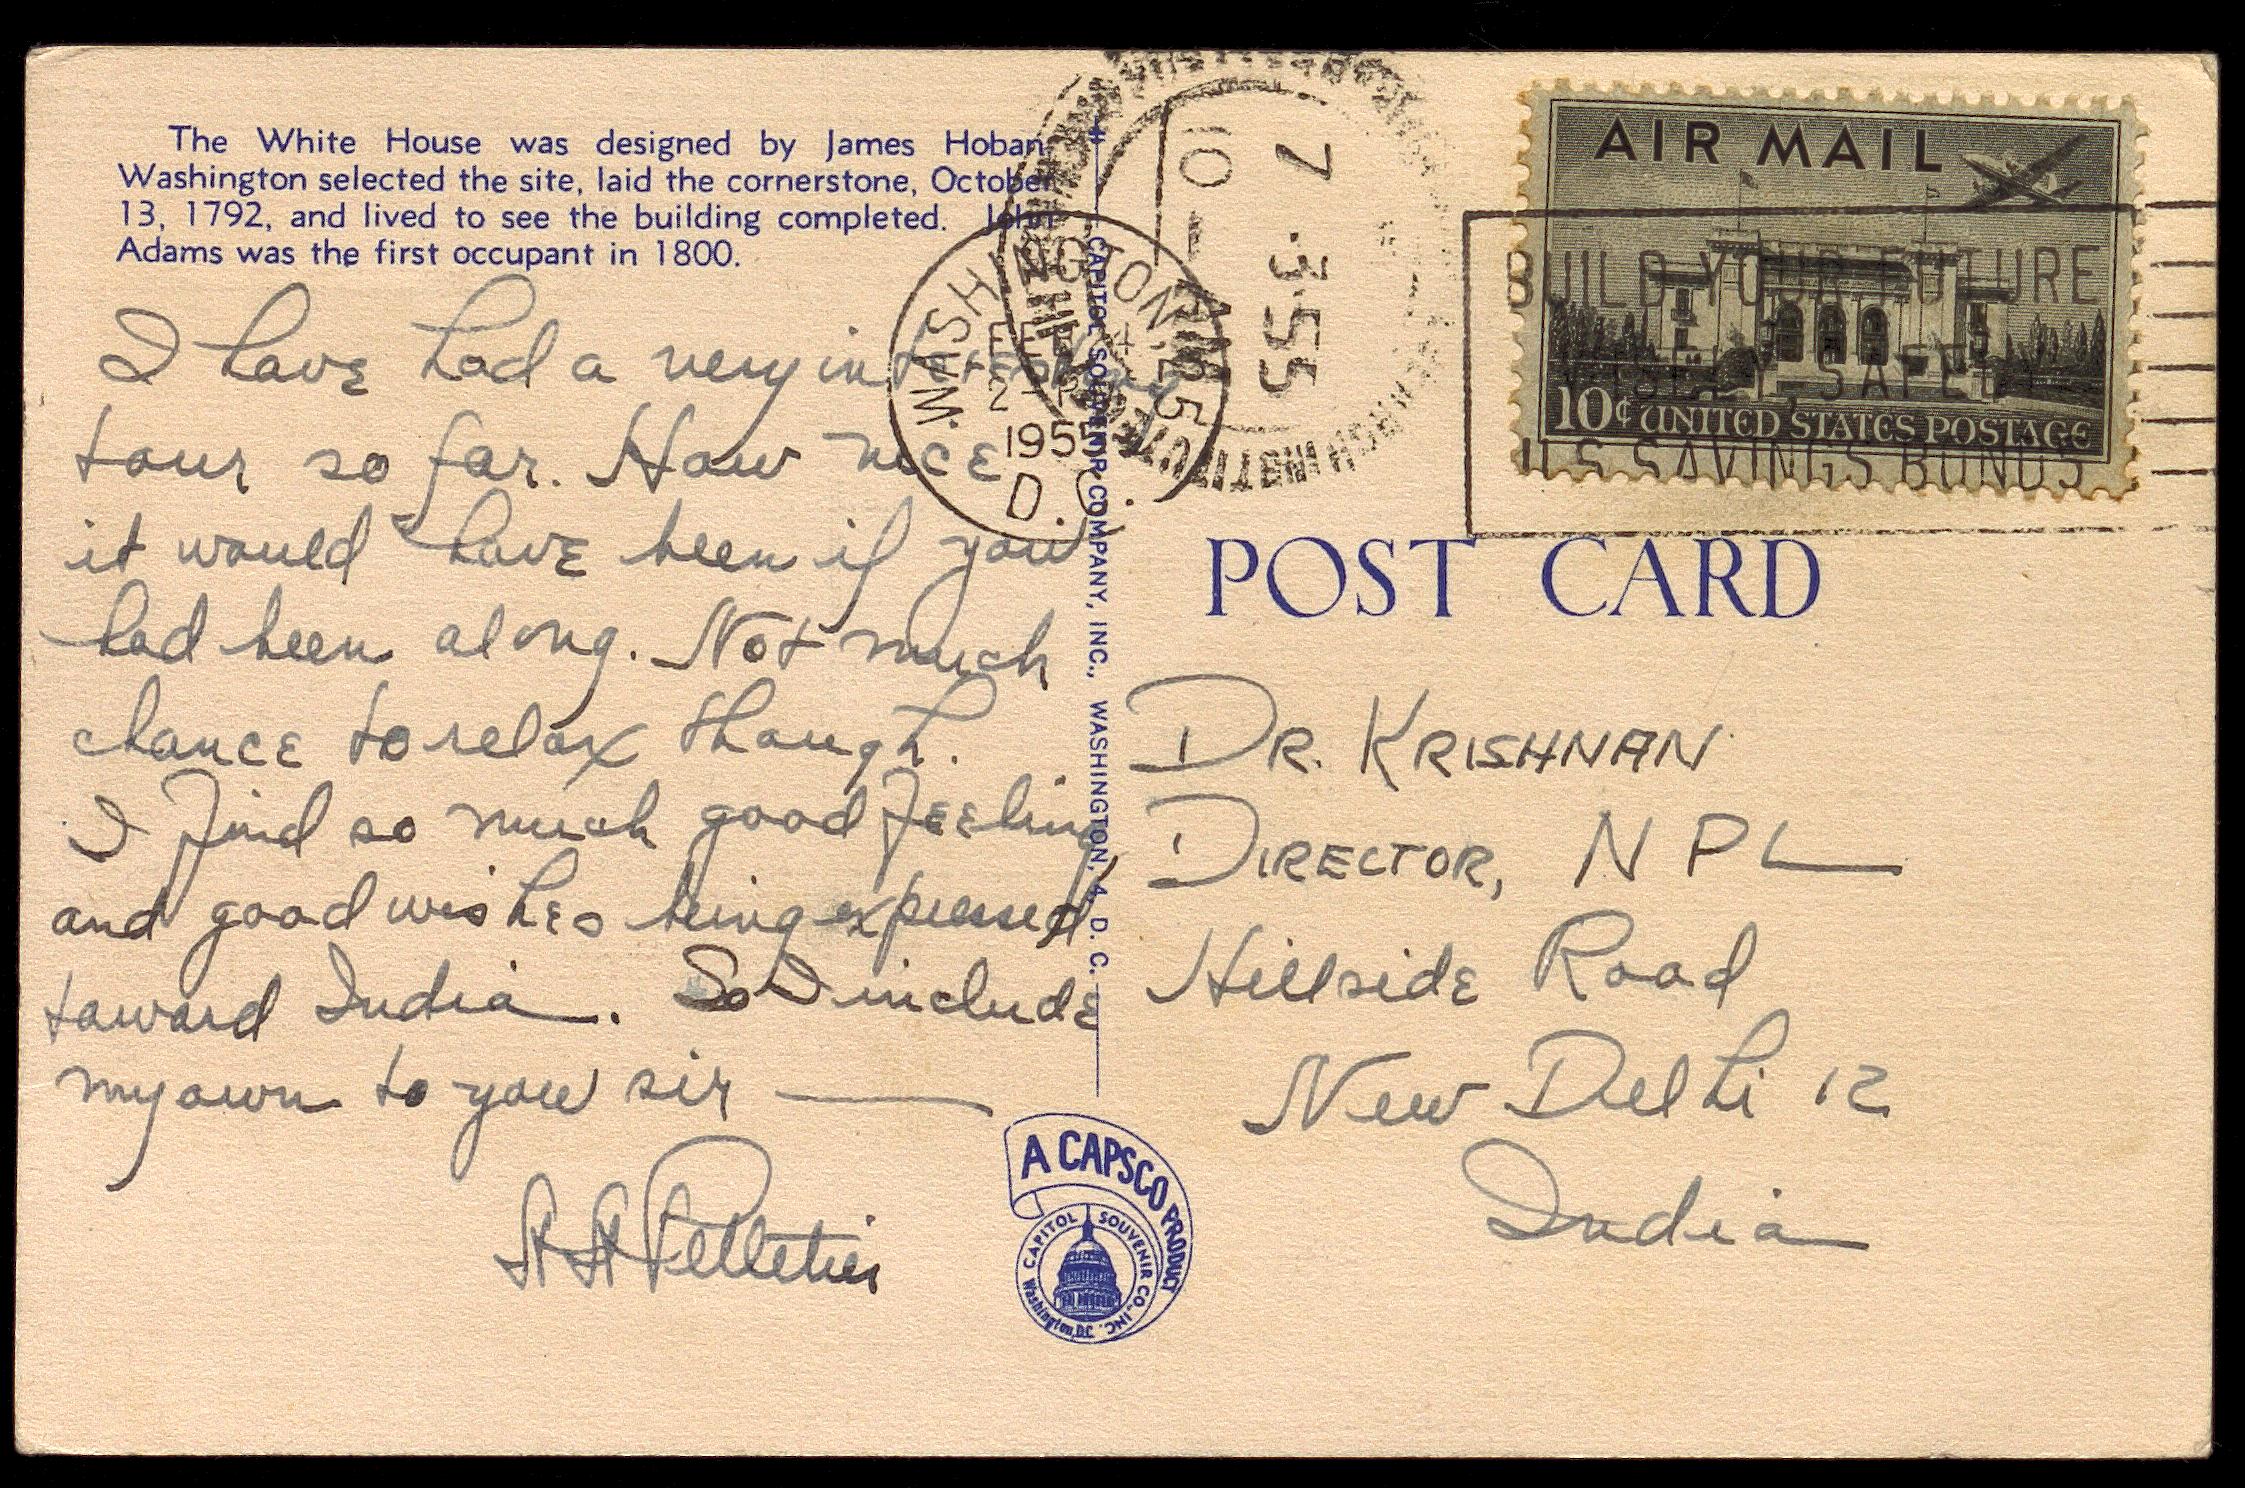 The White House was designed by James Hoban.
Washington selected the site, laid the cornerstone, October
13, 1792, and lived to see the building completed. John
Adams was the first occupant in 1800.
I have had a very interesting
tour so far. How nice
it would have been if you
had been along. Not much
chance to relax though.
I find so much good feeling
and good wishes being expressed
toward India. So I include
my own to you sir —
Pelletier
CAPITOL SOUVENIR COMPANY, INC., WASHINGTON, 4, D. C.
A CAPSCO PRODUCT
CAPITOL SOUVENIR CO., INC.
Washington, D.C.
WASHINGTON, 25
1955
D. C.
7·3·55
10 -
AIR MAIL
10¢ UNITED STATES POSTAGE
BUILD YOUR FUTURE
WISELY, SAFELY
U.S SAVINGS BONDS
POST CARD
DR. KRISHNAN
DIRECTOR, NPL
Hillside Road
New Delhi 12
India